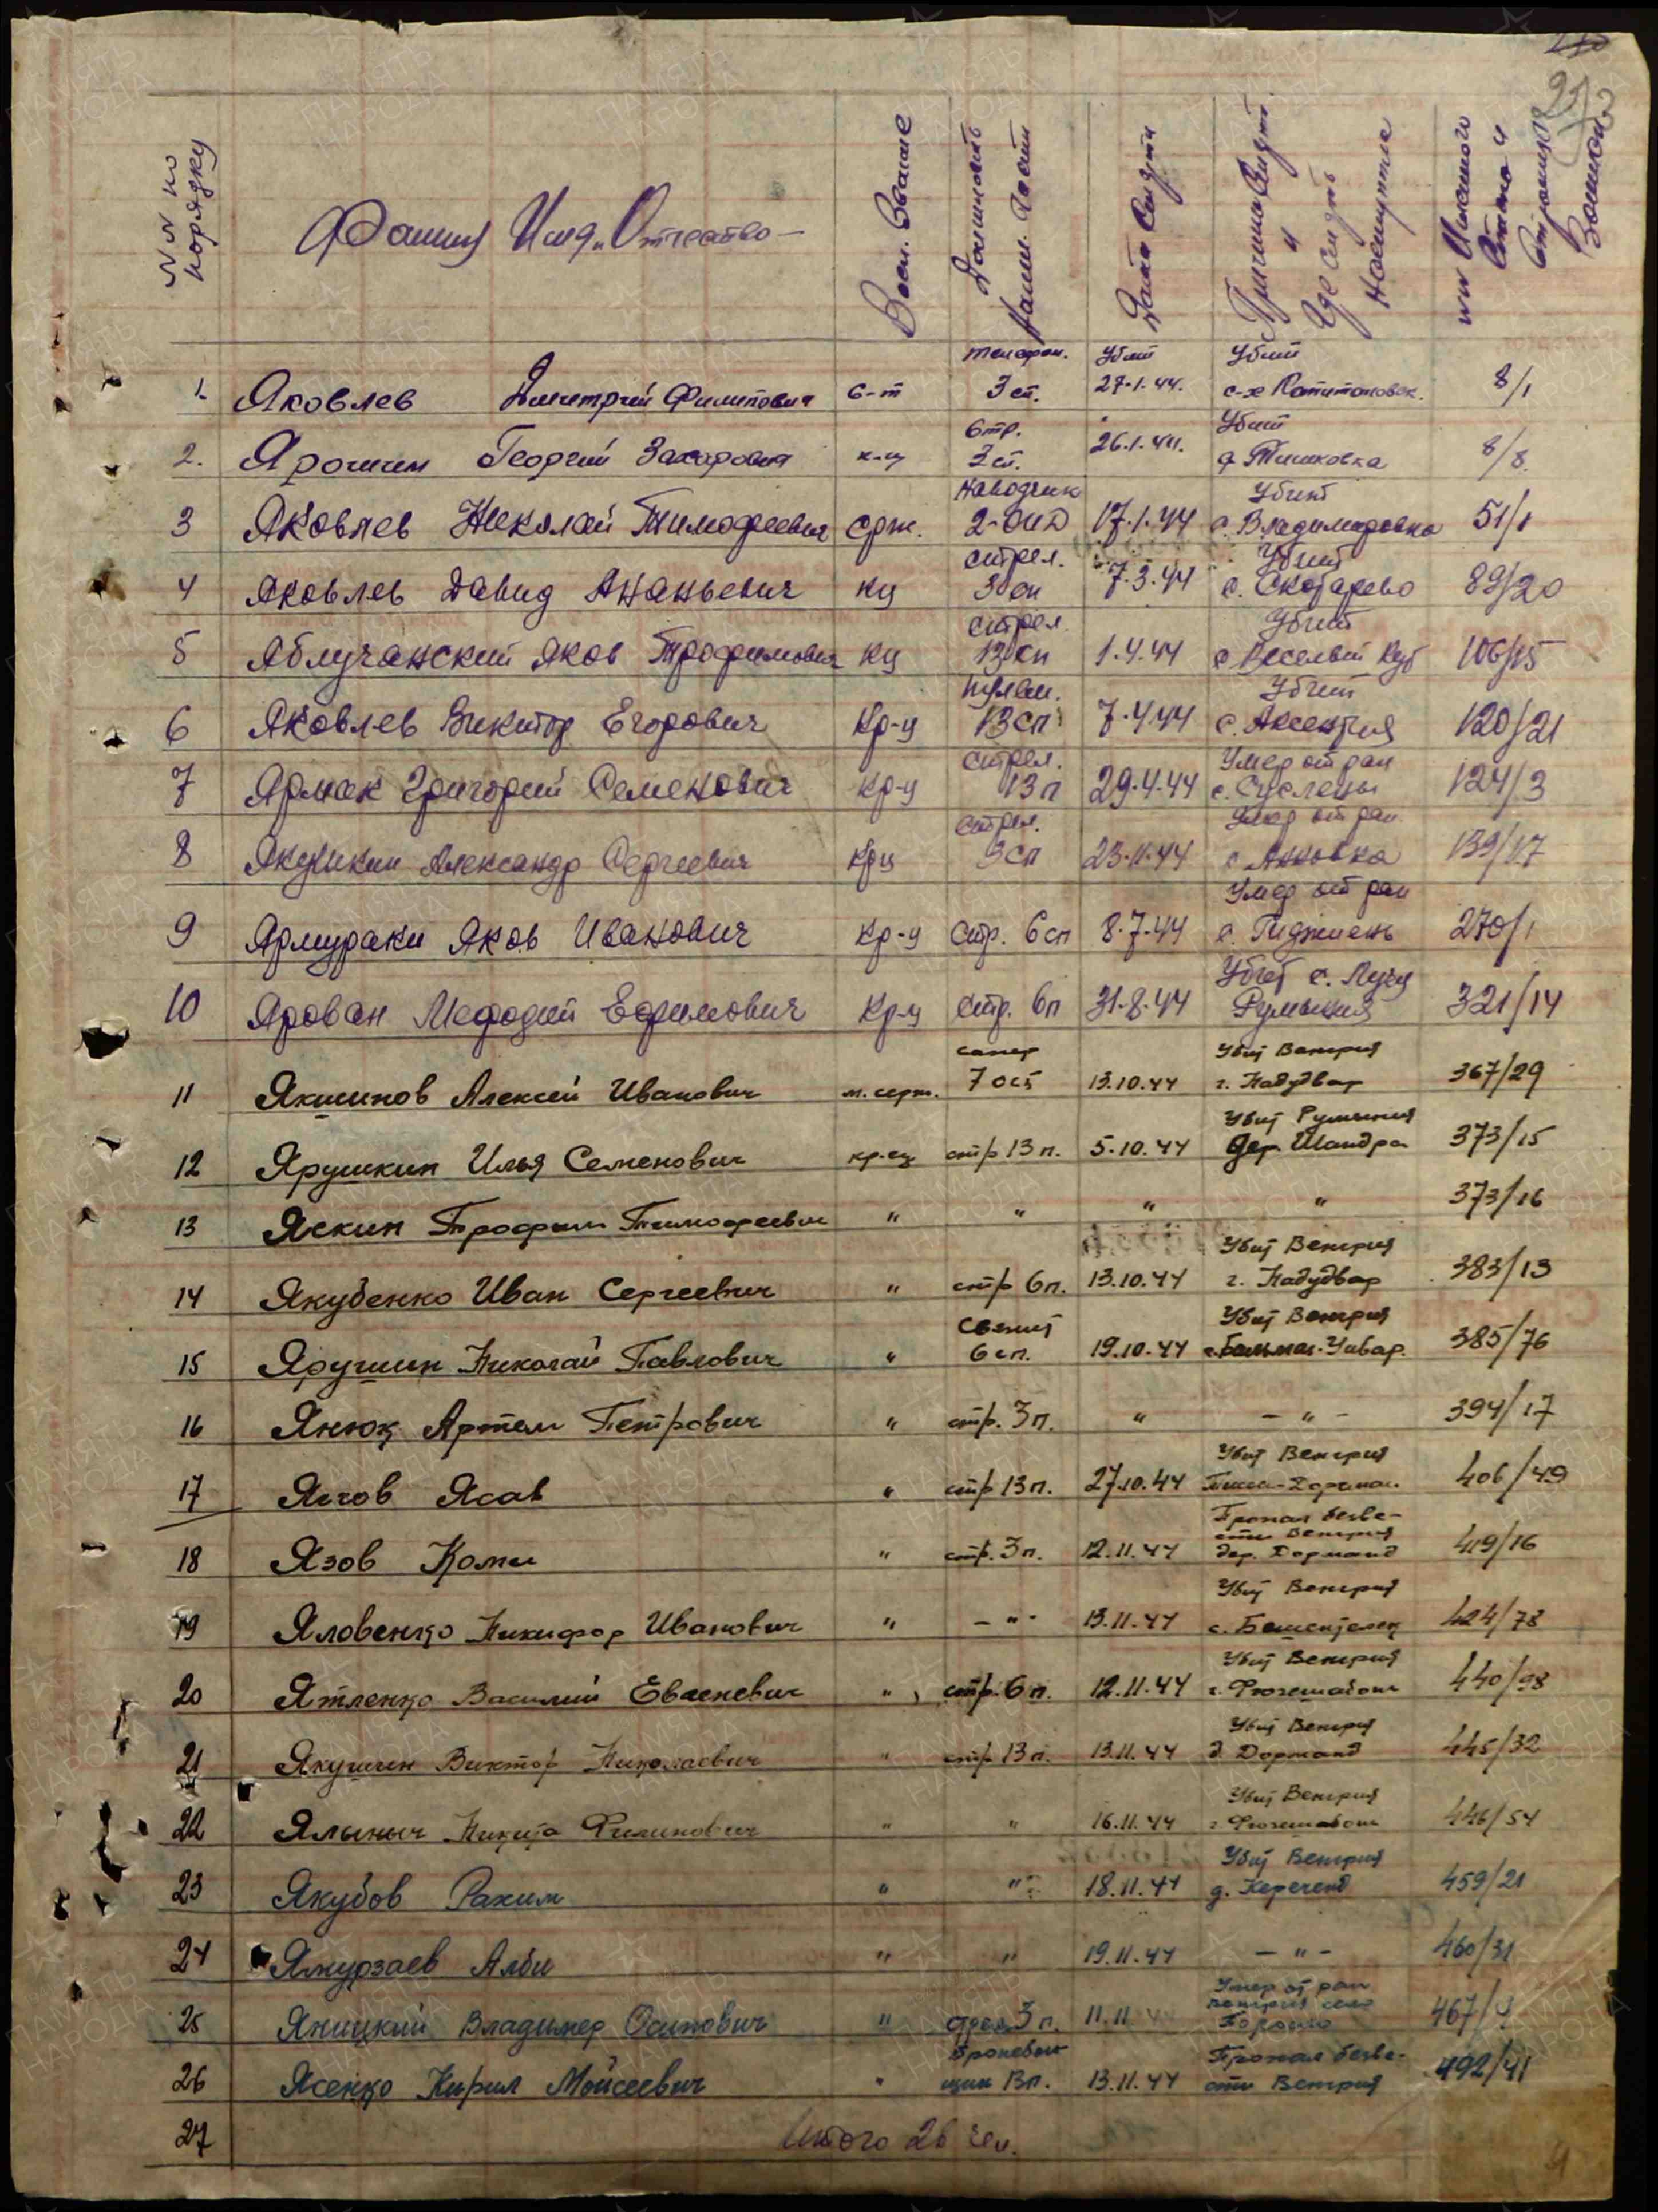 №№ по порядку
Фамилия Имя, Отчество
Воен. Звание
Должность Наим. части
Дата
Причина и Где
8/1
1. Яковлев Дмитрий Филипович с-т телефон. 3 сп. Убит 27.1.44. Убит
2. Ярошин Георгий Захарович к-ц Стр. 3 сп. 26.1.44. Убит д. Тишковка 8/8.
3 Яковлев Николай Тимофеевич срж. наводчик 17.1.44 Убит с. Владимировка 51/1
4 Яковлев Давид Ананьевич кц стрел. 7.3.44 Убит с. Скотарево 89/20
5 Яблучанский Яков Трофимович кц стрел. 13 сп 1.4.44 Убит с. Веселый Кут 106/15
6 Яковлев Викитор Егорович Кр-ц пулем. 13 сп 7.4.44 Убит с. Аксентия 120/21
7 Ярмак Григорий Семенович кр-ц стрел. 13 п 29.4.44 Умер от ран с. Суслены 124/3
8 Якушкин Александр Сергеевич крц стрел. 3 сп Умер от ран 139/17
9 Ярмураки Яков Иванович Кр-ц стр. 6 сп 8.7.44 Умер от ран 270/1
10 Ярован Мефодий Ефимович Кр-ц стр. 6п 31.8.44 Убит Румыния 321/14
11 Якшинов Алексей Иванович м. серж. сапер 7 осб 13.10.44 Убит Венгрия г. Надудвар 367/29
12 Ярушкин Илья Семенович кр-ец стр 13 п. 5.10.44 Убит Румыния дер. Шандра 373/15
13 Яскин Трофим Тимофеевич " " " " 373/16
14 Якубенко Иван Сергеевич " стр 6п. 13.10.44 Убит Венгрия г. Надудвар 383/13
15 Ярушин Николай Павлович " Связист 6 сп. 19.10.44 Убит Венгрия 385/76
16 Янюк Артем Петрович " стр. 3п. " - " - 394/17
17 Ягов Ясав " стр 13 п. 27.10.44 Убит Венгрия 406/49
18 Язов Коми " стр. 3 п. 12.11.44 Пропал безвести Венгрия дер. Дорманд 419/16
19 Яловенко Никифор Иванович " - " - 13.11.44 Убит Венгрия 424/78
20 Ятленко Василий Евсеневич " стр. 6 п. 12.11.44 Убит Венгрия г. Фюзешабонь 440/98
21 Якушин Виктор Николаевич " стр 13 п. 13.11.44 Убит Венгрия д. Дорманд 445/32
22 Ялыныч Никита Филипович " " 16.11.44 Убит Венгрия г. Фюзешабонь 446/54
23 Якубов Рахим " " 18.11.44 Убит Венгрия д. Керечend 459/21
24 Ямурзаев Алби " " 19.11.44 - " - 460/31
25 Яницкий Владимер Осипович " 3 п. 11.11. Умер от ран Венгрия село
26 Ясенко Кирил Мойсеевич " Бронебойщик 13п. 13.11.44 Пропал безвести Венгрия 492/41
27 Итого 26 чел.
ПАМЯТЬ НАРОДА